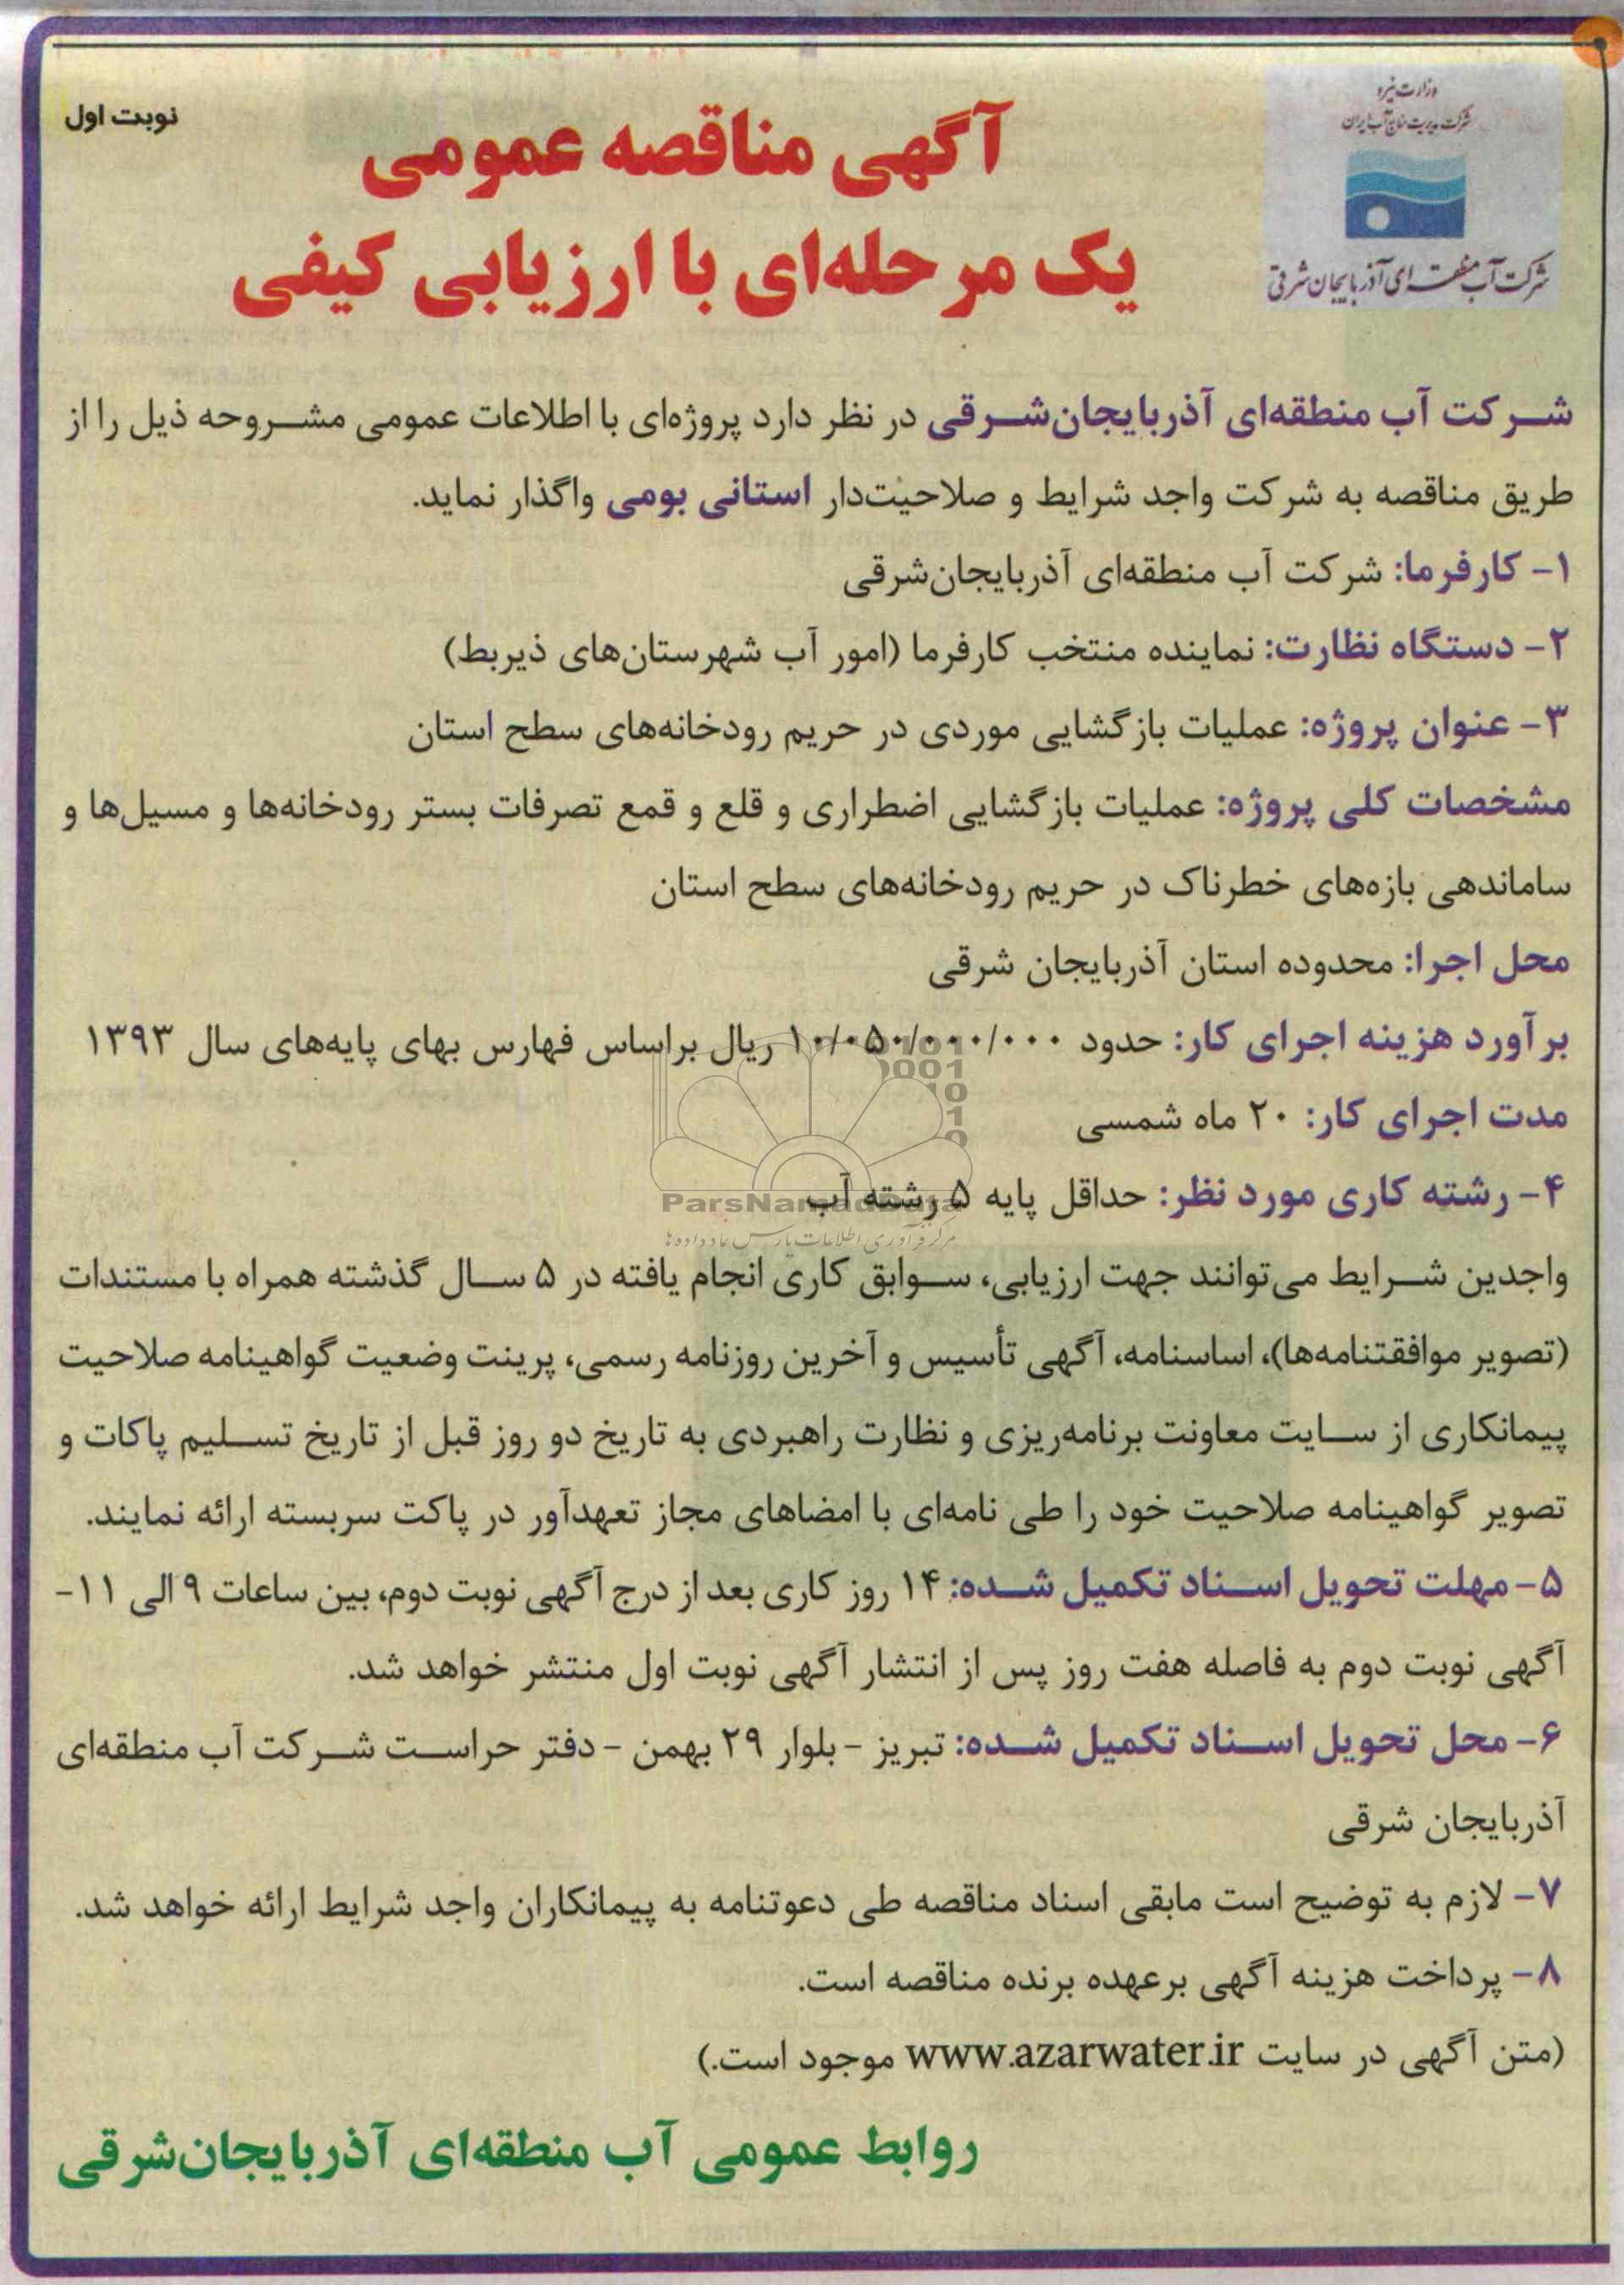 وزارت نیرو
شرکت مدیریت منابع آب ایران
شرکت آب منطقه‌ای آذربایجان شرقی
نوبت اول
آگهی مناقصه عمومی
یک مرحله‌ای با ارزیابی کیفی
شرکت آب منطقه‌ای آذربایجان‌شرقی در نظر دارد پروژه‌ای با اطلاعات عمومی مشروحه ذیل را از
طریق مناقصه به شرکت واجد شرایط و صلاحیت‌دار استانی بومی واگذار نماید.
۱- کارفرما: شرکت آب منطقه‌ای آذربایجان‌شرقی
۲- دستگاه نظارت: نماینده منتخب کارفرما (امور آب شهرستان‌های ذیربط)
۳- عنوان پروژه: عملیات بازگشایی موردی در حریم رودخانه‌های سطح استان
مشخصات کلی پروژه: عملیات بازگشایی اضطراری و قلع و قمع تصرفات بستر رودخانه‌ها و مسیل‌ها و
ساماندهی بازه‌های خطرناک در حریم رودخانه‌های سطح استان
محل اجرا: محدوده استان آذربایجان شرقی
برآورد هزینه اجرای کار: حدود ۱۰/۰۵۰/۰۰۰/۰۰۰ ریال براساس فهارس بهای پایه‌های سال ۱۳۹۳
مدت اجرای کار: ۲۰ ماه شمسی
۴- رشته کاری مورد نظر: حداقل پایه ۵ رشته آب
ParsNamadData
مرکز فرآوری اطلاعات پارس نماد داده‌ها
واجدین شرایط می‌توانند جهت ارزیابی، سوابق کاری انجام یافته در ۵ سال گذشته همراه با مستندات
(تصویر موافقتنامه‌ها)، اساسنامه، آگهی تأسیس و آخرین روزنامه رسمی، پرینت وضعیت گواهینامه صلاحیت
پیمانکاری از سایت معاونت برنامه‌ریزی و نظارت راهبردی به تاریخ دو روز قبل از تاریخ تسلیم پاکات و
تصویر گواهینامه صلاحیت خود را طی نامه‌ای با امضاهای مجاز تعهدآور در پاکت سربسته ارائه نمایند.
۵- مهلت تحویل اسناد تکمیل شده: ۱۴ روز کاری بعد از درج آگهی نوبت دوم، بین ساعات ۹ الی ۱۱-
آگهی نوبت دوم به فاصله هفت روز پس از انتشار آگهی نوبت اول منتشر خواهد شد.
۶- محل تحویل اسناد تکمیل شده: تبریز - بلوار ۲۹ بهمن - دفتر حراست شرکت آب منطقه‌ای
آذربایجان شرقی
۷- لازم به توضیح است مابقی اسناد مناقصه طی دعوتنامه به پیمانکاران واجد شرایط ارائه خواهد شد.
۸- پرداخت هزینه آگهی برعهده برنده مناقصه است.
(متن آگهی در سایت www.azarwater.ir موجود است.)
روابط عمومی آب منطقه‌ای آذربایجان‌شرقی